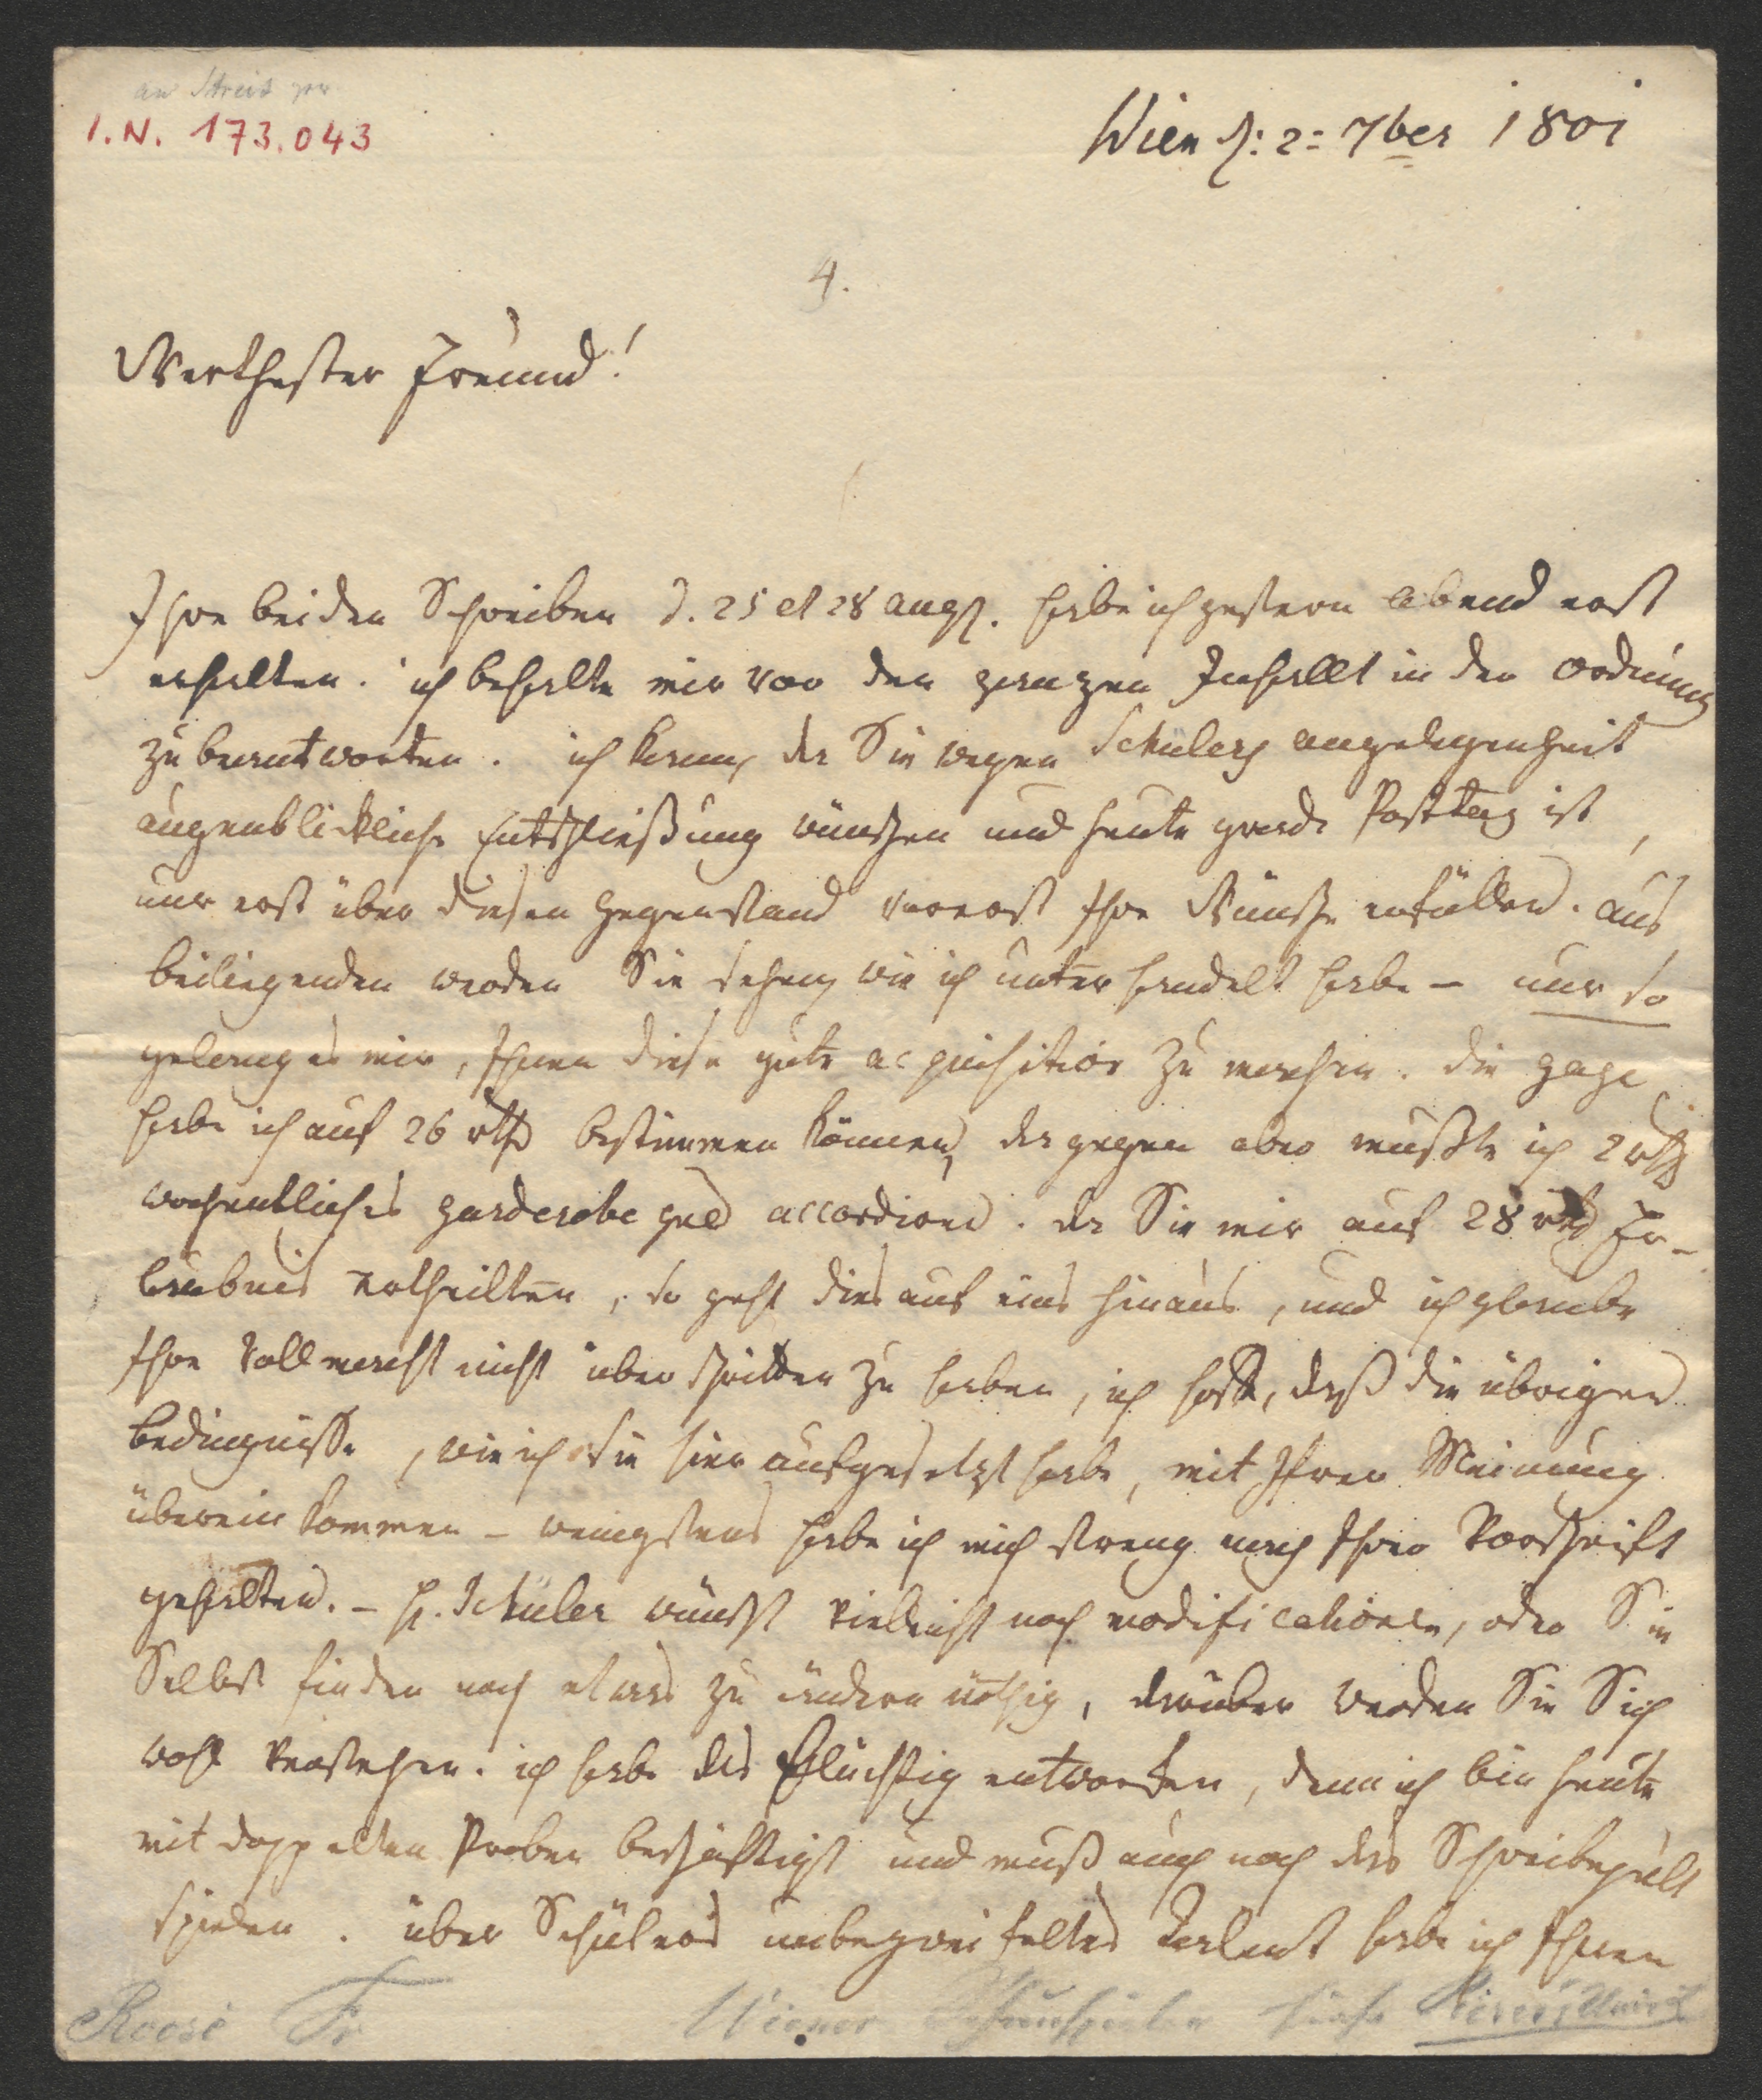 an Streit
I.N. 173.043
Wien d: 2= 7ber 1801
4.
Werthester Freund!
Ihre beiden Schreiben d. 25 et 28 aug. habe ich gestern abend erst
erhalten. ich behalte mir vor den ganzen Inhallt in der ordnung
zu beantworten. ich kann, da Sie wegen Schülers angelegenheit
augenblickliche Entschließung wünschen und heute grade Posttag ist,
nur erst über diesen Gegenstand vorerst Ihre Wünsche erfüllen. aus
beiliegenden werden Sie sehen, wie ich unterhandelt habe – nur so
gelang es mir, Ihnen diese gute acquisition zu machen. die gage
habe ich auf 26 rth bestimmen können, dagegen aber mußte ich 2 rth
wochentliches garderobe geld accordiren. da Sie mir auf 28 rth Er-
laubnis ertheilten, so geht dies auf eins hinaus, und ich glaube
Ihre Vollmacht nicht überschritten zu haben, ich hoffe, daß die übrigen
bedingnisse, wie ich sie hier aufgesetzt habe, mit Ihrer Meinung
überein kommen – wenigstens habe ich mich streng nach Ihrer Vorschrift
gehalten. – H. Schüler wünscht vielleicht noch modificationen, oder Sie
Selbst finden noch etwas zu ändern nöthig, darüber werden Sie Sich
wohl verstehen. ich habe das flüchtig entworfen, denn ich bin heute
mit doppelten Proben beschäftigt und muß auch noch das Schreibepult
spielen. über Schülers unbezweifeltes Talent habe ich Ihnen
Roose Fr
Wiener Schauspieler siehe